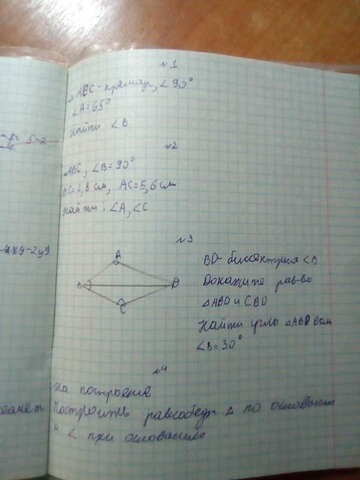 №1
△ABC - прямоуг, ∠90°
∠A=65°
Найти ∠B
№2
ABC, ∠B=90°
BC=2,8 см, AC=5,6 см
Найти: ∠A, ∠C
№3
A
B
D
C
BD - биссектриса ∠B
Докажите рав-во
△ABD и CBD
Найти углы △ABD если
∠B=30°
№4
На построение
Построить равнобедр △ по основанию
и ∠ при основании